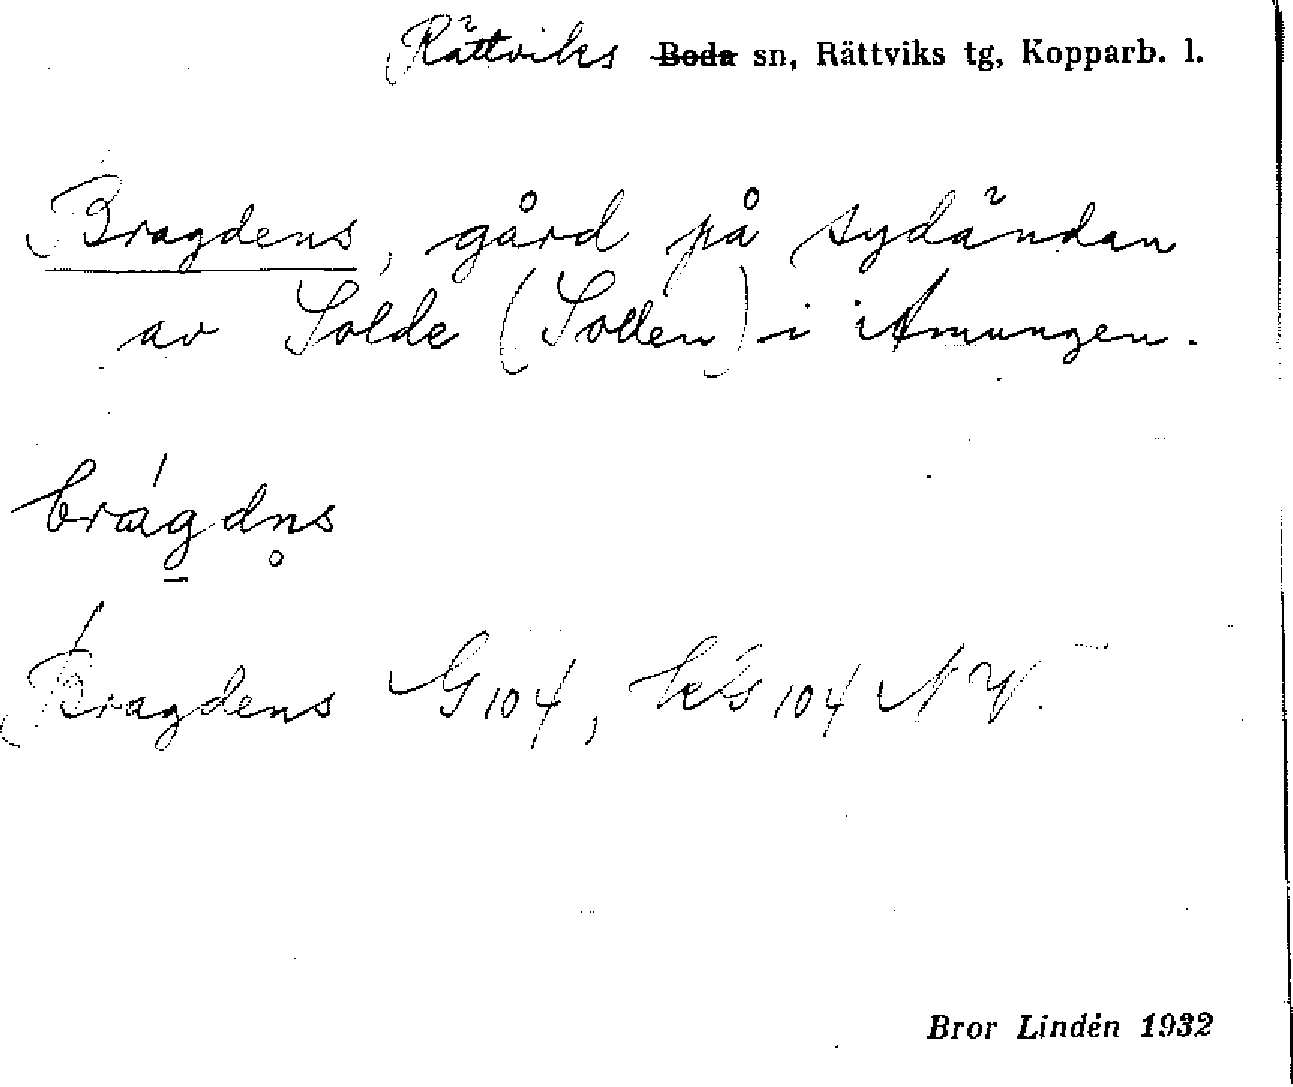 Rättviks ~~Boda~~ sn, Rättviks tg, Kopparb. l.
Bragdens, gård på sydändan
av Solde (Sollen) i Amungen.
brágdn̥s
Bragdens G 104, kG 104 NV.
Bror Lindén 1932